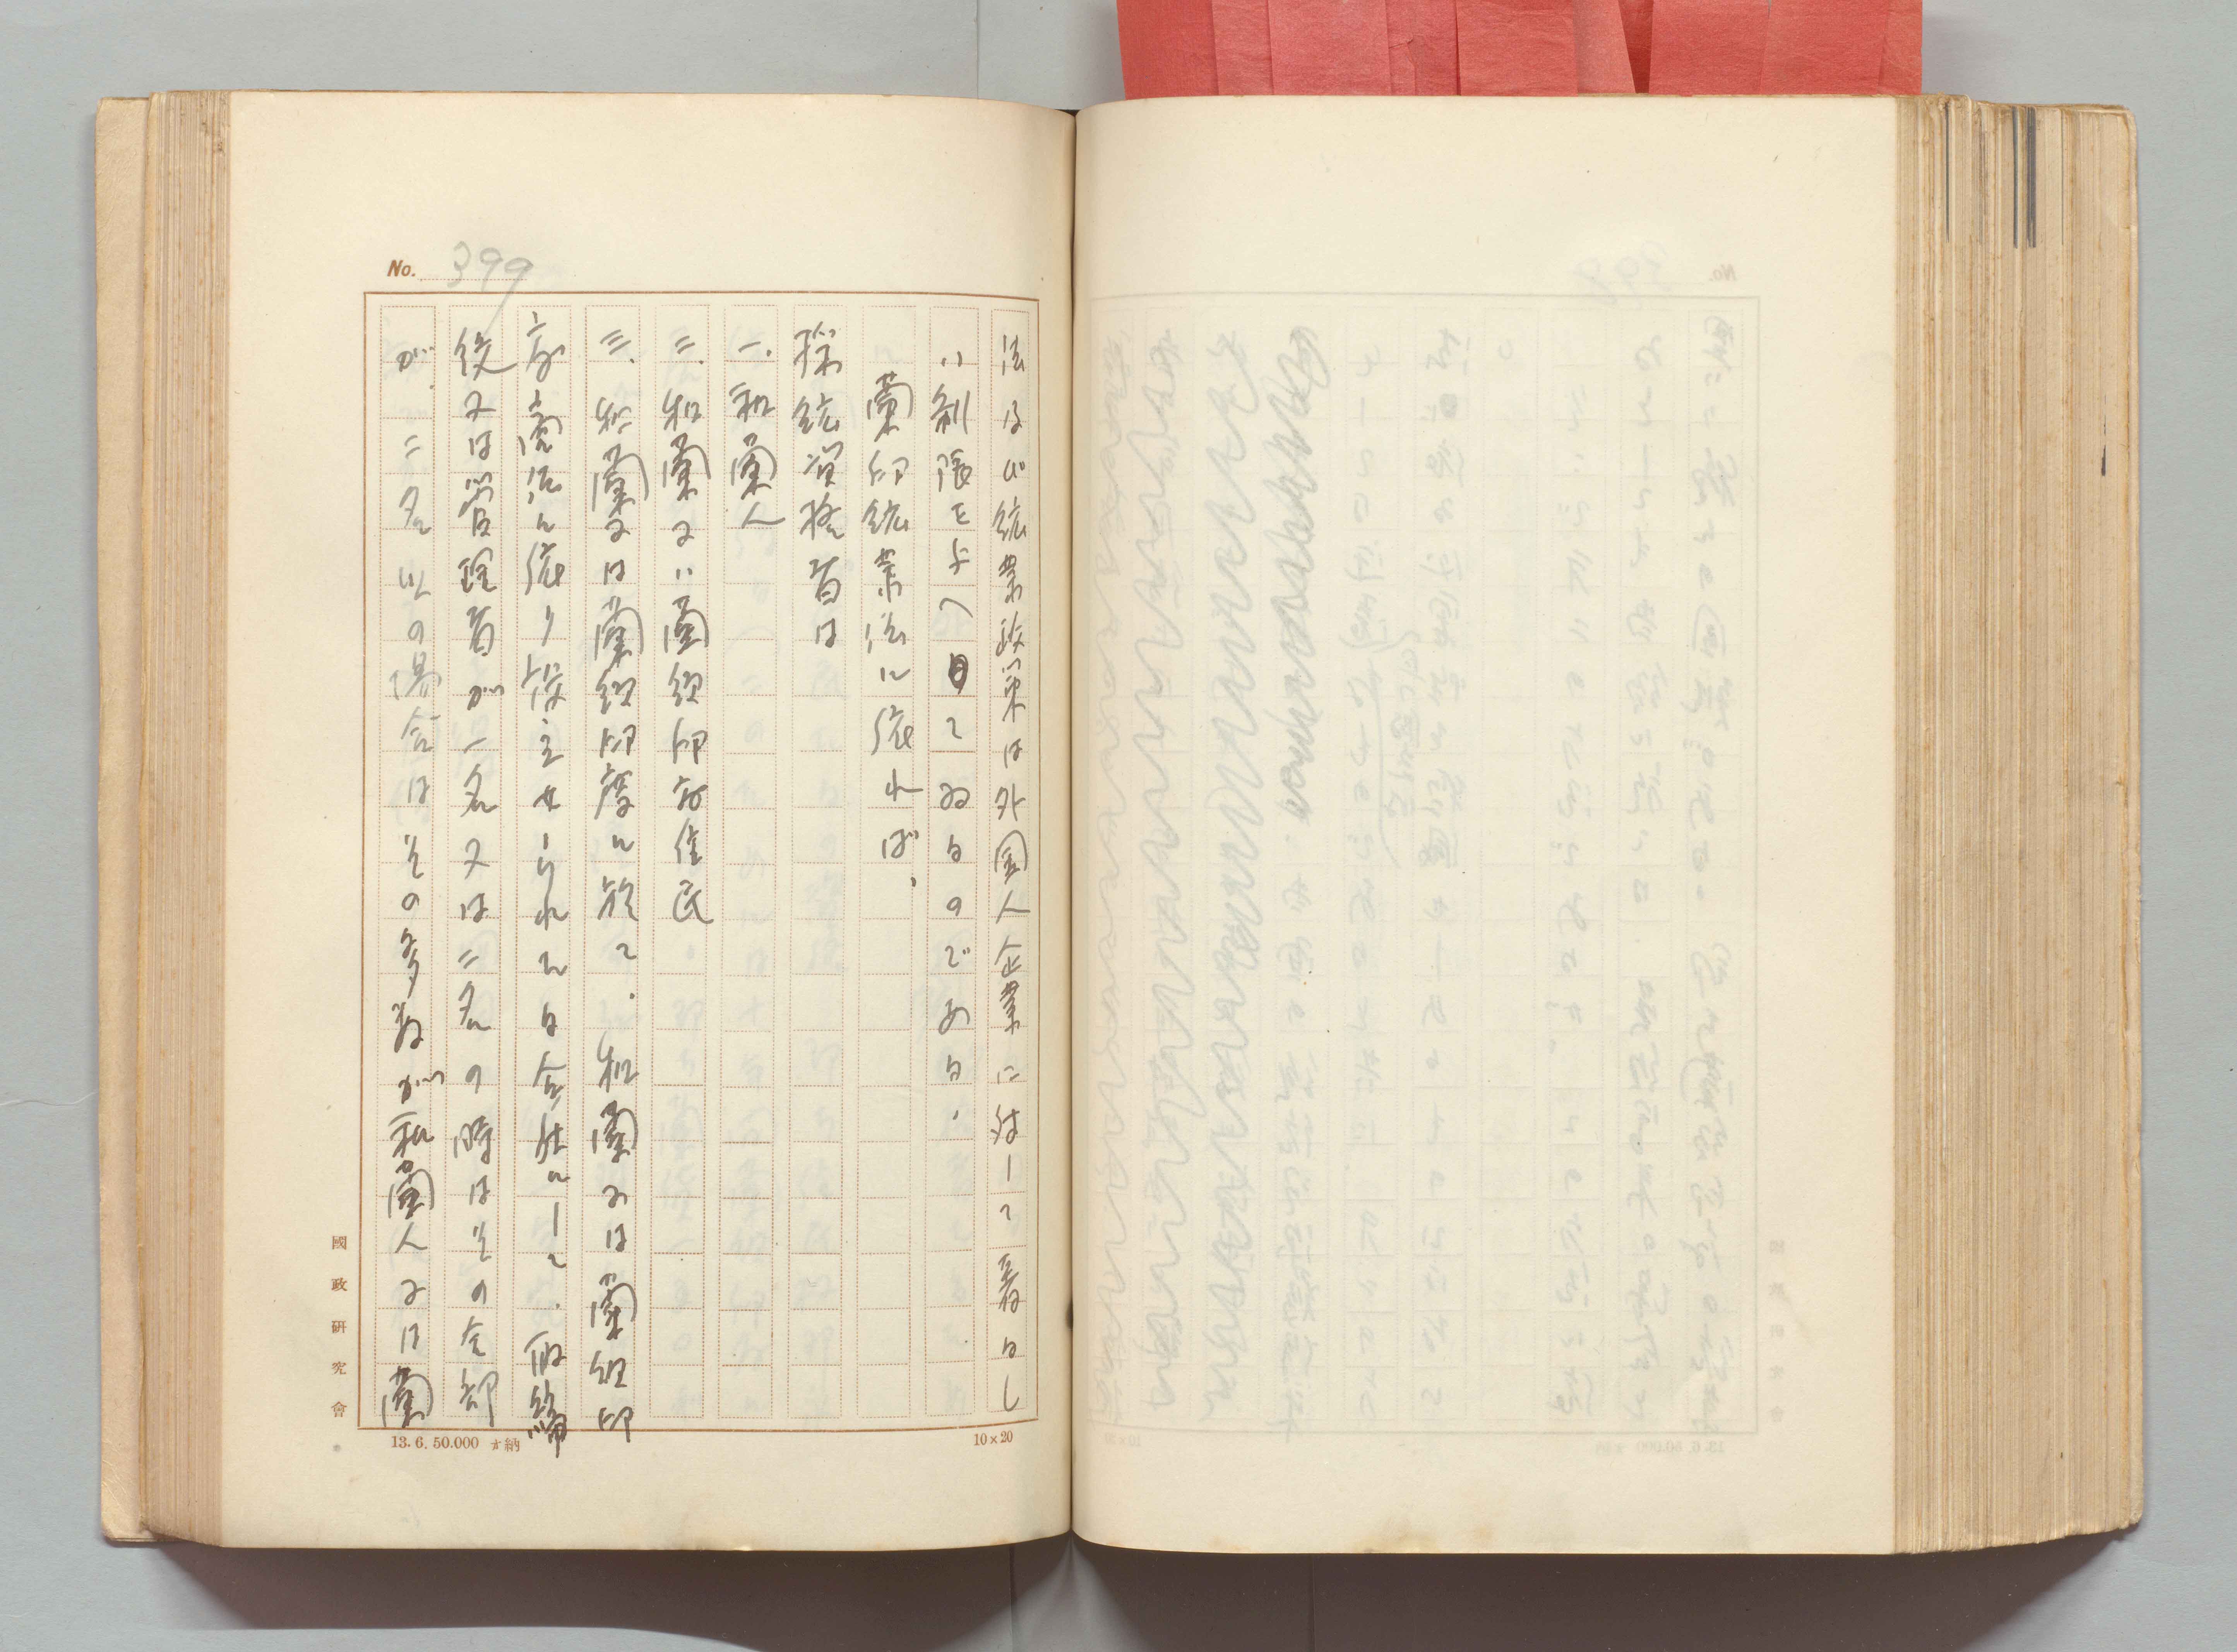 No. 399
法及び鉱業政策は外国人企業に対して著るし
い制限を与へてゐるのである。
蘭印鉱業法に依れば、
採鉱資格者は
一、和蘭人
二、和蘭又ハ蘭領印在住民
三、和蘭又は蘭領印度に於て、和蘭又は蘭領印
商法に依り設立せられたる会社にして、取締
役又は管理者が一名又は二名の時はその全部
が、三名以上の場合はその多数が和蘭人又は蘭
國政研究會
13.6.50.000 納
10×20